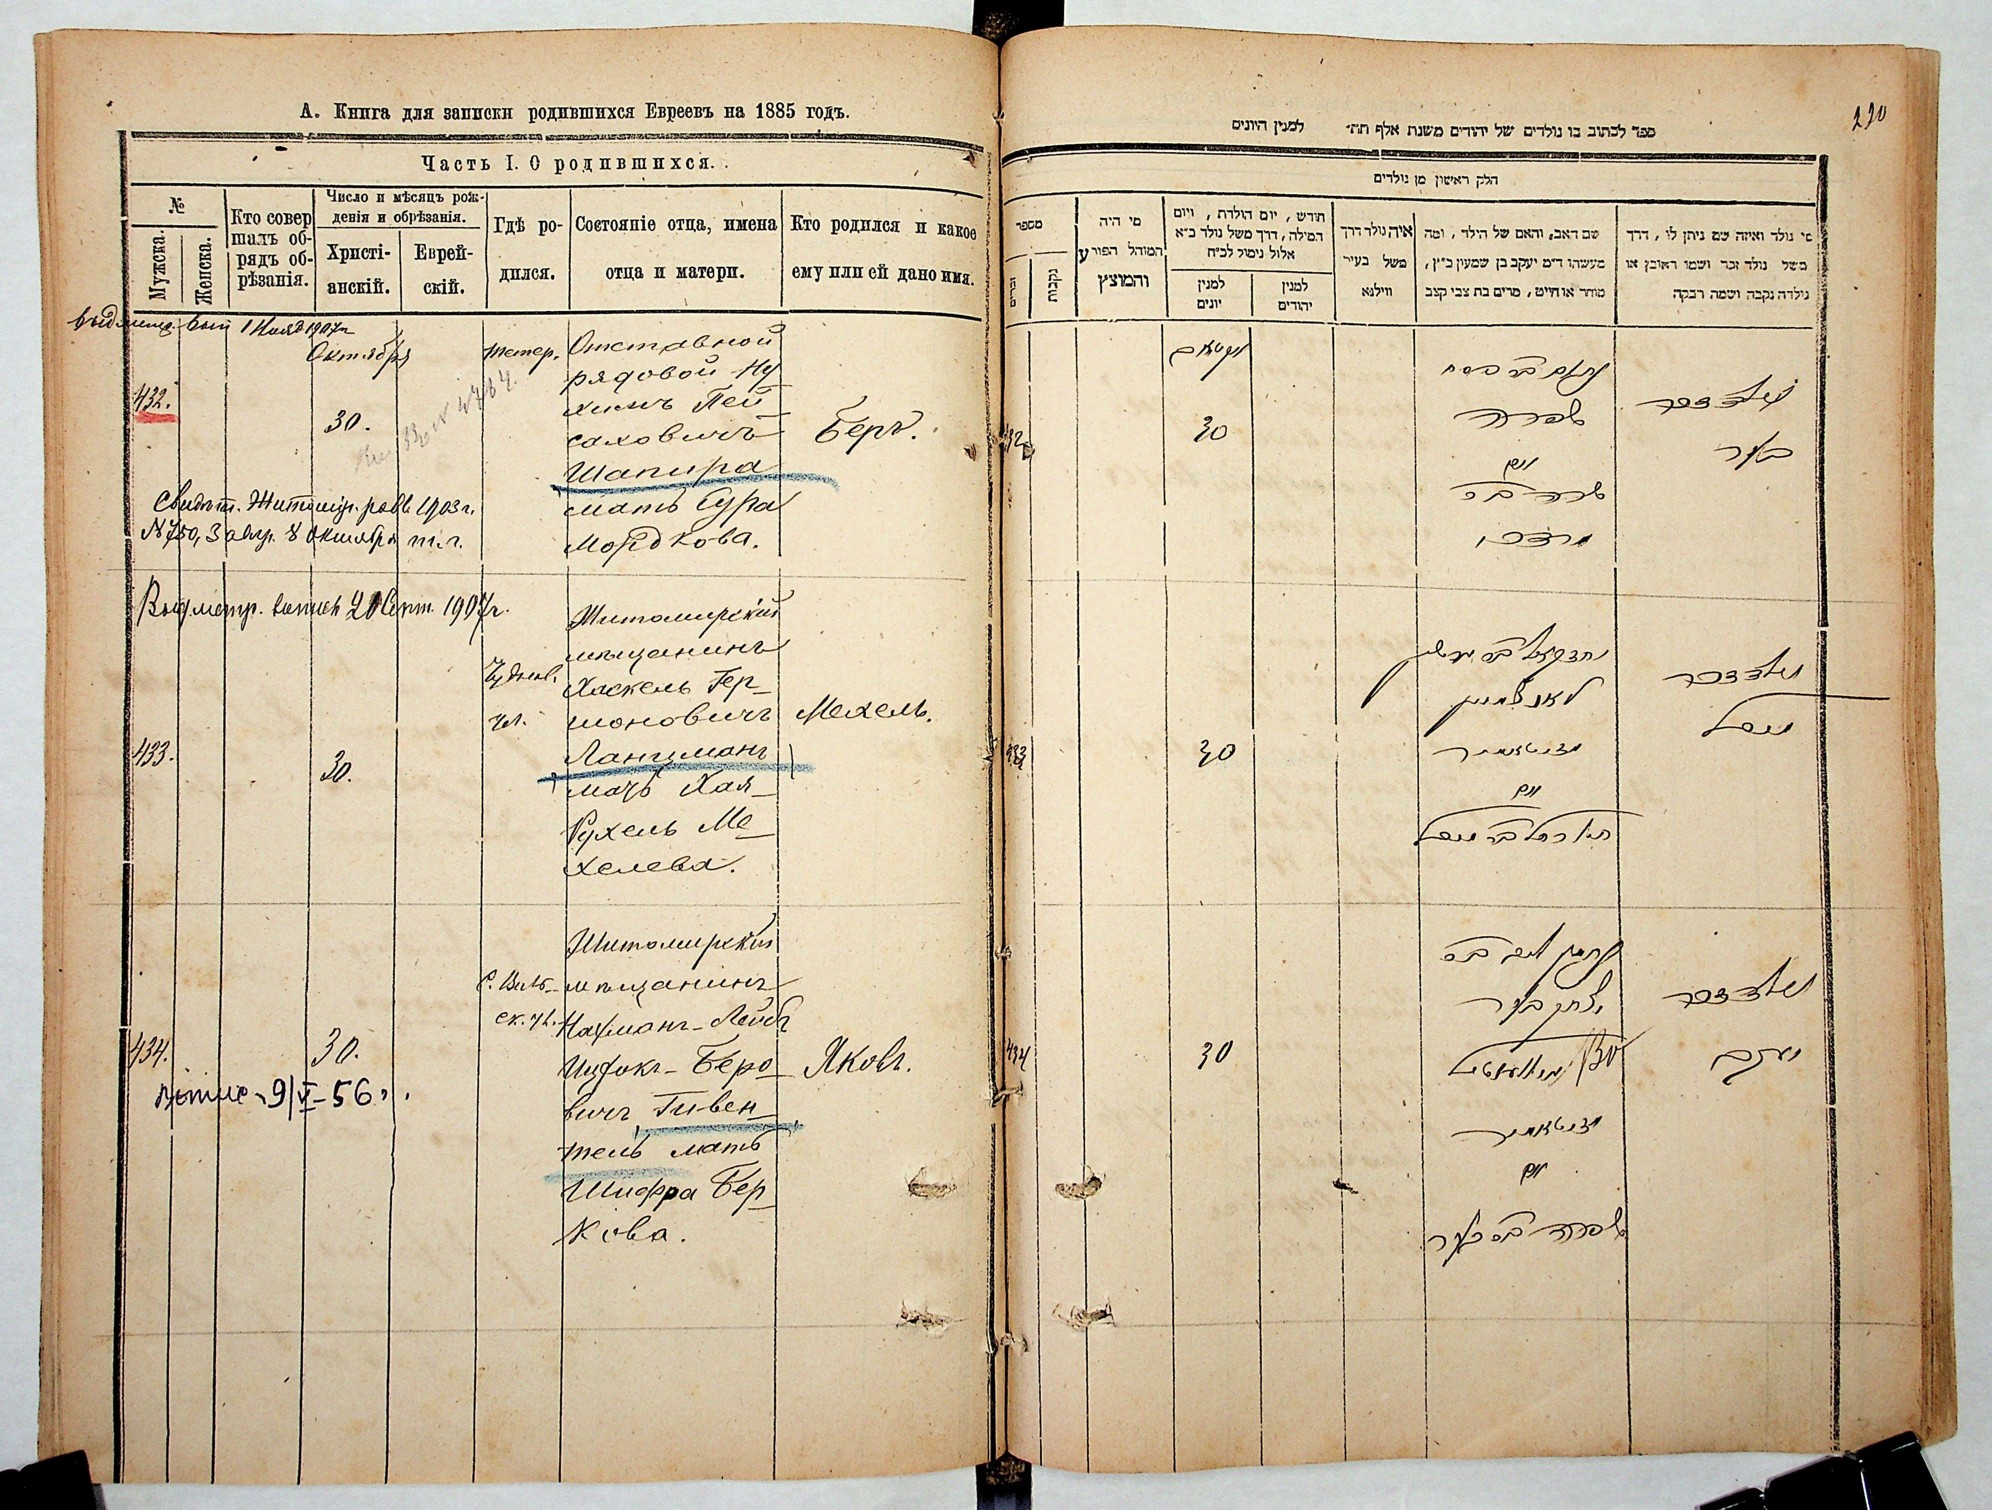 А. Книга для записки родившихся Евреевъ на 1885 годъ.
Часть I. О родившихся.
№
Мужска.
Женска.
Кто совер
шалъ об-
рядъ об-
рѣзанія.
Число и мѣсяцъ рож-
денія и обрѣзанія.
Христі-
анскій.
Еврей-
скій.
Гдѣ ро-
дился.
Состояніе отца, имена
отца и матери.
Кто родился и какое
ему или ей дано имя.
1907 г.
Октября
432.
30.
Отставной
рядовой Ну
химъ Пей
саховичъ
Шапира
мать Сура
Мордкова.
Беръ.
Свидѣт. Житомір. равв. 1903 г.
№ 750, 3 8 Октября т. г.
Выд. метр. выпись 20 Сент. 1907 г.
433.
30.
Чуднов.
ул.
Житомирскій
мѣщанинъ
Хаскель Гер-
шоновичъ
Ланцманъ
мать Хая-
Рухель Ме-
хелева.
Мехель.
434.
30.
9/V-56
С. Виль-
ск. ул.
Житомирскій
мѣщанинъ
Нахманъ-Лейбъ
Ицхокъ-Беро-
вичъ Гивен-
тель мать
Шифра Бер-
кова.
Яковъ.
220
ספר לכתוב בו נולדים של יהודים משנת אלף תת״ למנין היונים
חלק ראשון מן נולדים
מספר
זכרים
נקבות
מי היה
המוהל הפורע
והמוצץ
חודש, יום הולדת, ויום
המילה, דרך משל נולד כ״א
אלול נימול לכ״ח
למנין
יונים
למנין
יהודים
איה נולד דרך
משל בעיר
ווילנא
שם האב, והאם של הילד, ומה
מעשהו ד״מ יעקב בן שמעון כ״ץ,
מוחר או חייט, מרים בת צבי קצב
מי נולד ואיזה שם ניתן לו, דרך
משל נולד זכר ושמו ראובן או
נולדה נקבה ושמה רבקה
432
30
נחום בר פסח
שפירא
ואם
שרה בת
מרדכי
נולד זכר
בער
433
30
יחזקאל בר גרשון
לאנצמאן
זיטאמיר
ואם
חיה רחל בת מיכל
נולד זכר
מיכל
434
30
נחמן ליב בר
יצחק בער
זיטאמיר
ואם
שפרה בת בער
נולד זכר
יעקב